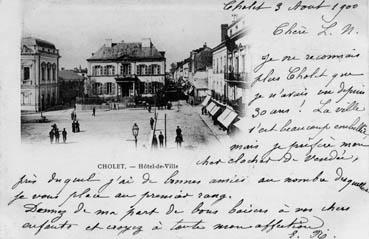 Cholet 3 Aout 1900
Chère L. N.
je ne reconnais
plus Cholet que
je n'avais vu depuis
30 ans! La ville
s'est beaucoup embellie
mais je préfère mon
cher clocher de Vendée,
CHOLET. — Hôtel-de-Ville
près duquel j'ai de bonnes amies au nombre desquelles
je vous place au premier rang.
Donnez de ma part de bons baisers à vos chers
enfants et croyez à toute mon affection